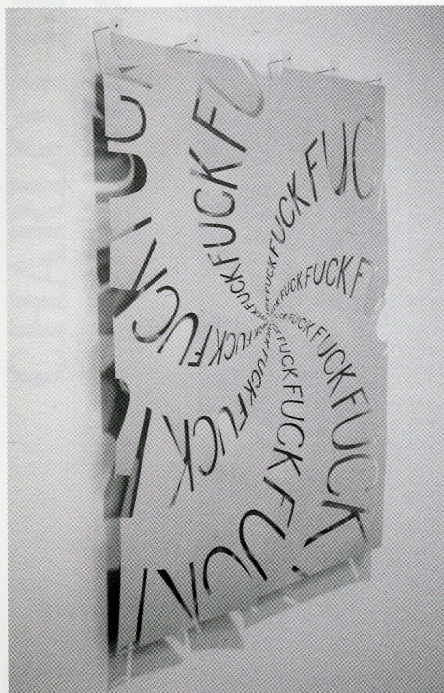 FUCKFUCKFU
FUCKFUCKFUC
FUCKFUCKF
FUCKFUCKFUCK
FUCKFUCKFUCK
FUCKFUCK
FUCKFUCKFUCK